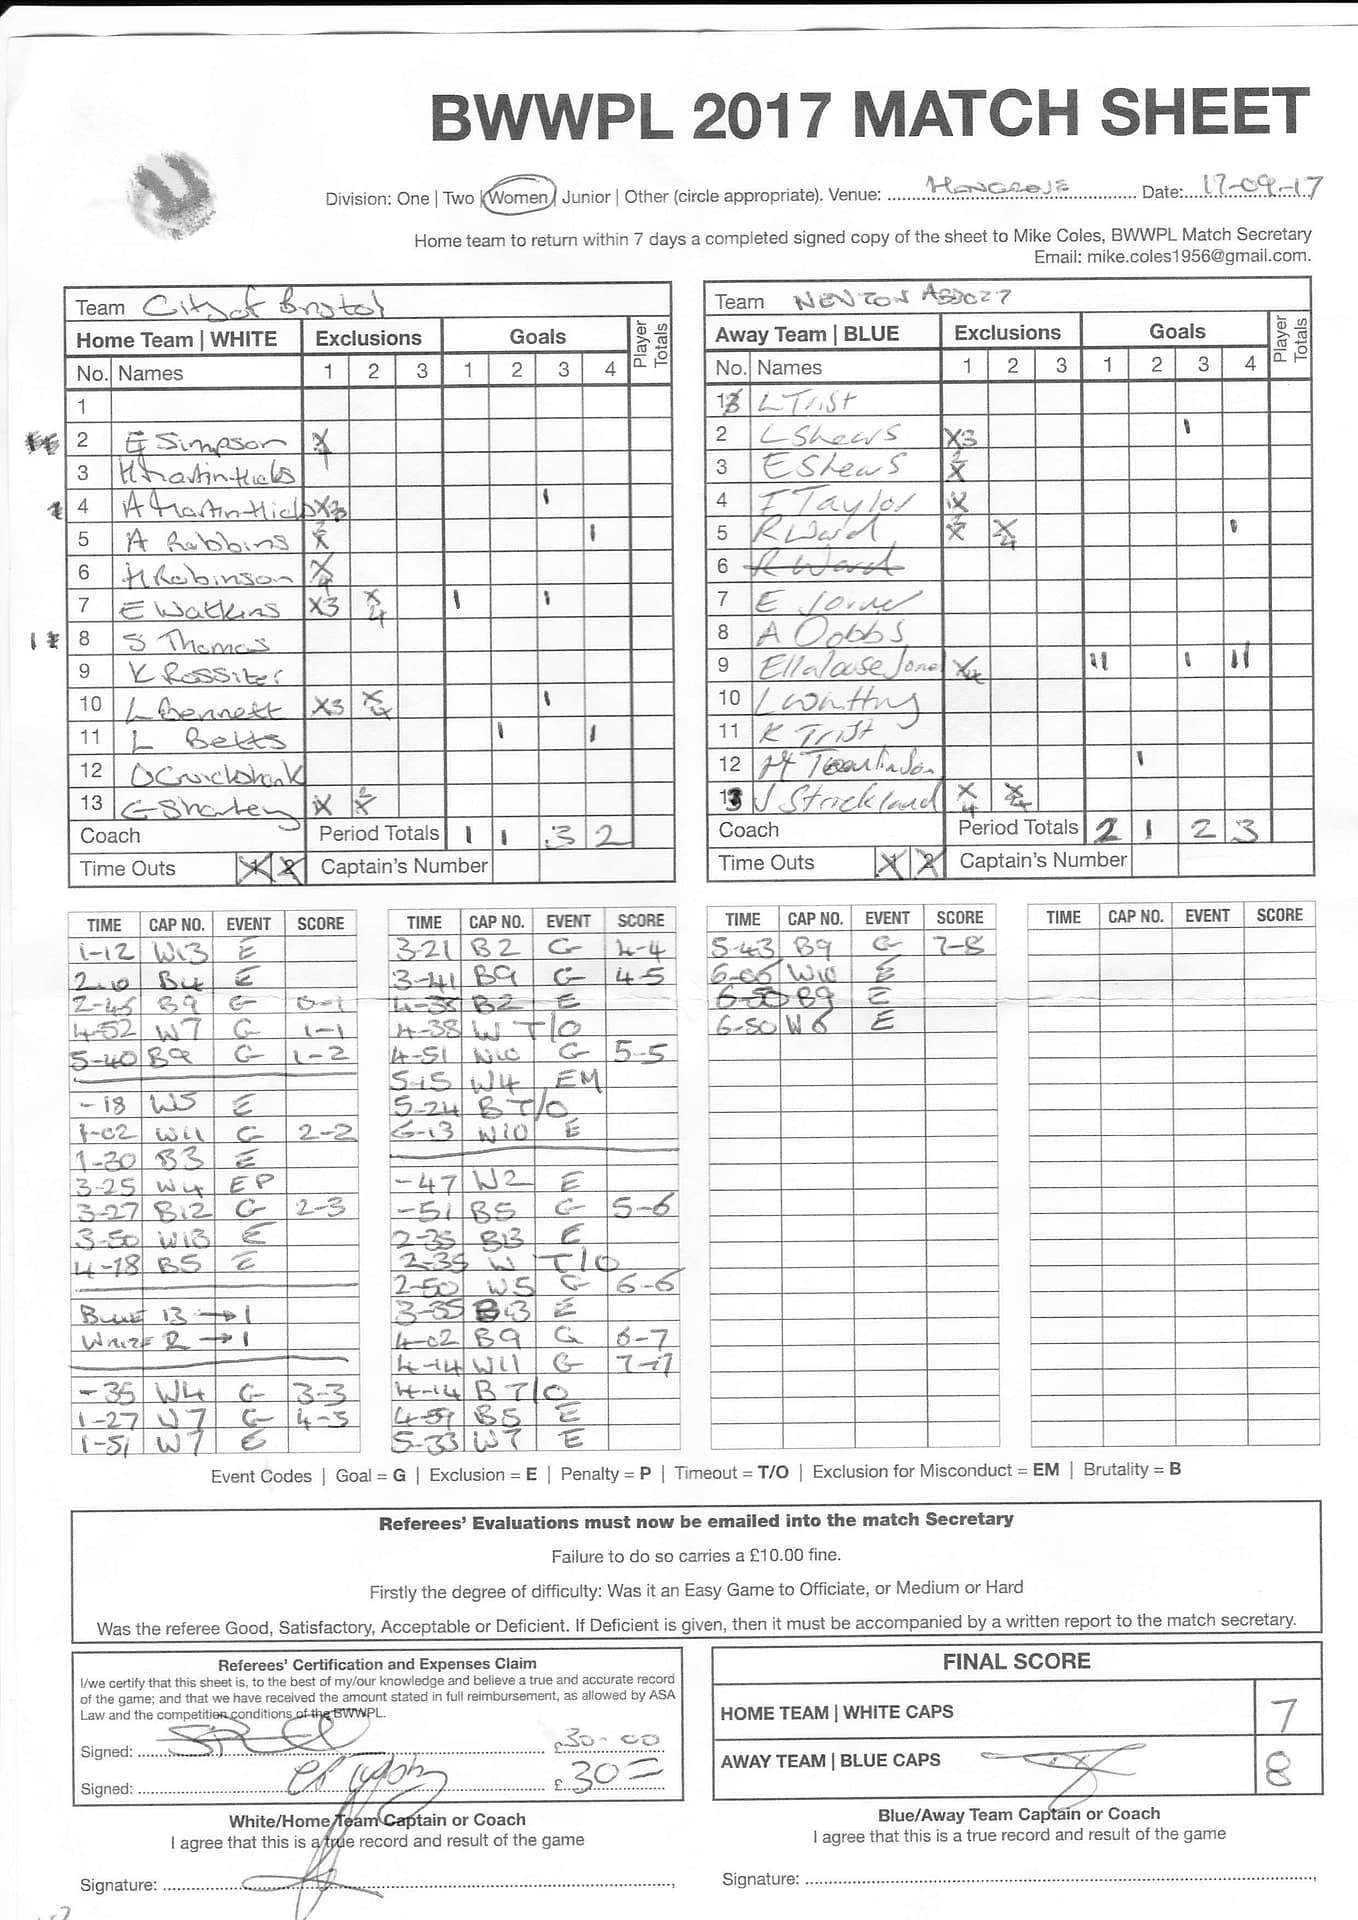 BWWPL 2017 MATCH SHEET
Division: One | Two | Women | Junior | Other (circle appropriate). Venue: HENGROVE Date: 17-09-17
Home team to return within 7 days a completed signed copy of the sheet to Mike Coles, BWWPL Match Secretary
Email: mike.coles1956@gmail.com.
Team City of Bristol
Home Team | WHITE Exclusions Goals Player Totals
No. Names 1 2 3 1 2 3 4
1
2 E Simpson X
3 H Martin-Hicks
4 A Martin-Hicks X3 I
5 A Robbins X2 I
6 H Robinson X4
7 E Watkins X3 X4 I I
8 S Thomas
9 K Rossiter
10 L Bennett X3 X4 I
11 L Betts I I
12 O Cruickshank
13 G Sharley X X2
Coach Period Totals 1 1 3 2
Time Outs 1 2 Captain's Number
Team NEWTON ABBOTT
Away Team | BLUE Exclusions Goals Player Totals
No. Names 1 2 3 1 2 3 4
13 L Trist
2 L Shews X3 I
3 E Shews X2
4 F Taylor X
5 R Ward X2 X4 I
6 R Ward
7 E Joiner
8 A Dobbs
9 Ellalouise Jones X4 II I II
10 L Whitting
11 K Trist
12 M Tomlinson I
13 J Strickland X4 X4
Coach Period Totals 2 1 2 3
Time Outs 1 2 Captain's Number
TIME CAP NO. EVENT SCORE
1-12 W13 E
2-10 B4 E
2-45 B9 G 0-1
4-52 W7 G 1-1
5-40 B9 G 1-2
-18 W5 E
1-02 W11 G 2-2
1-30 B3 E
3-25 W4 EP
3-27 B12 G 2-3
3-50 W13 E
4-18 B5 E
BLUE 13 → 1
WHITE 2 → 1
-35 W4 G 3-3
1-27 W7 G 4-3
1-51 W7 E
TIME CAP NO. EVENT SCORE
3-21 B2 G 4-4
3-41 B9 G 4-5
4-38 B2 E
4-38 W T/O
4-51 W10 G 5-5
5-15 W4 EM
5-24 B T/O
6-13 W10 E
-47 W2 E
-51 B5 G 5-6
2-35 B13 E
2-35 W T/O
2-50 W5 G 6-6
3-35 B13 E
4-02 B9 G 6-7
4-14 W11 G 7-7
4-14 B T/O
4-59 B5 E
5-33 W7 E
TIME CAP NO. EVENT SCORE
5-43 B9 G 7-8
6-06 W10 E
6-50 B9 E
6-50 W6 E
TIME CAP NO. EVENT SCORE
Event Codes | Goal = G | Exclusion = E | Penalty = P | Timeout = T/O | Exclusion for Misconduct = EM | Brutality = B
Referees' Evaluations must now be emailed into the match Secretary
Failure to do so carries a £10.00 fine.
Firstly the degree of difficulty: Was it an Easy Game to Officiate, or Medium or Hard
Was the referee Good, Satisfactory, Acceptable or Deficient. If Deficient is given, then it must be accompanied by a written report to the match secretary.
Referees' Certification and Expenses Claim
I/we certify that this sheet is, to the best of my/our knowledge and believe a true and accurate record
of the game; and that we have received the amount stated in full reimbursement, as allowed by ASA
Law and the competition conditions of the BWWPL.
Signed: £30-00
Signed: £30=
FINAL SCORE
HOME TEAM | WHITE CAPS 7
AWAY TEAM | BLUE CAPS 8
White/Home Team Captain or Coach
I agree that this is a true record and result of the game
Signature:
Blue/Away Team Captain or Coach
I agree that this is a true record and result of the game
Signature: